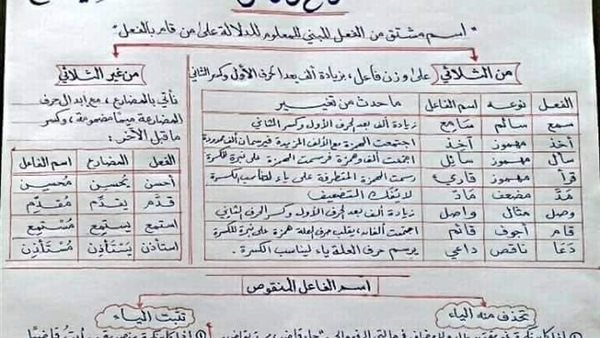 " اسم مشتق من الفعل المبني للمعلوم للدلالة على من قام بالفعل "
من الثلاثي
على وزن فاعل، بزيادة ألف بعد الحرف الأول وكسر الثاني
الفعل نوعه اسم الفاعل ما حدث من تغيير
سمع سالم سَامِع زيادة ألف بعد الحرف الأول وكسر الثاني
أخذ مهموز آخِذ اجتمعت الهمزة مع الألف المزيدة فيرسمان ألف ممدودة
سأل مهموز سَائِل اجتمعت ألف وهمزة فرسمت الهمزة على نبرة للكسرة
قرأ مهموز قارِئ رسمت الهمزة المتطرفة على ياء لتناسب الكسرة
مَدَّ مضعف مَادّ لا يُفك التضعيف
وصل مثال واصِل زيادة ألف بعد الحرف الأول وكسر الحرف الثاني
قام أجوف قائم اجتمعت ألفان، يقلب حرف العلة همزة على نبرة للكسرة
دَعَا ناقص داعي يرسم حرف العلة ياء ليناسب الكسرة
من غير الثلاثي
نأتي بالمضارع، مع ابدال حرف
المضارعة ميمًا مضمومة، وكسر
ما قبل الآخر:
الفعل المضارع اسم الفاعل
أحسن يُحسِن مُحسِن
قدَّم يقدِّم مُقدِّم
استمع يستمِع مُستمِع
استأذن يَستَأذِن مُستَأذِن
اسم الفاعل المنقوص
تحذف منه الياء
تثبت الياء